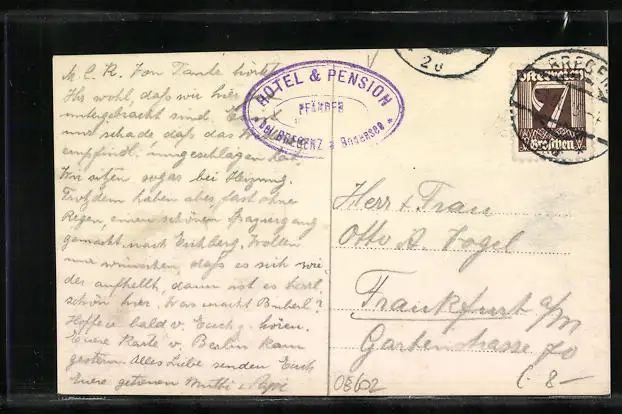 M. C. R. Von Tante hörtet
Ihr wohl, daß wir hier
untergebracht sind.
nur schade, daß das
empfindl. umgeschlagen hat.
Wir sitzen sogar bei Heizung.
Trotzdem haben aber, fast ohne
Regen, einen schönen Spaziergang
gemacht nach Eichberg. Wollen
nur wünschen, daß es sich wie-
der aufhellt, dann ist es herrl.
schön hier. Was macht Buberl?
Hoffe bald v. Euch z. hören.
Euere Karte v. Berlin kam
gestern. Alles Liebe senden Euch
Euere getreuen Mutti
HOTEL & PENSION
PFÄNDER
bei BREGENZ a Bodensee
20
BREGEN
Österreich
7
Groschen
Herr & Frau
Otto A. Vogel
Frankfurt a/M
Gartenstrasse 70
8-